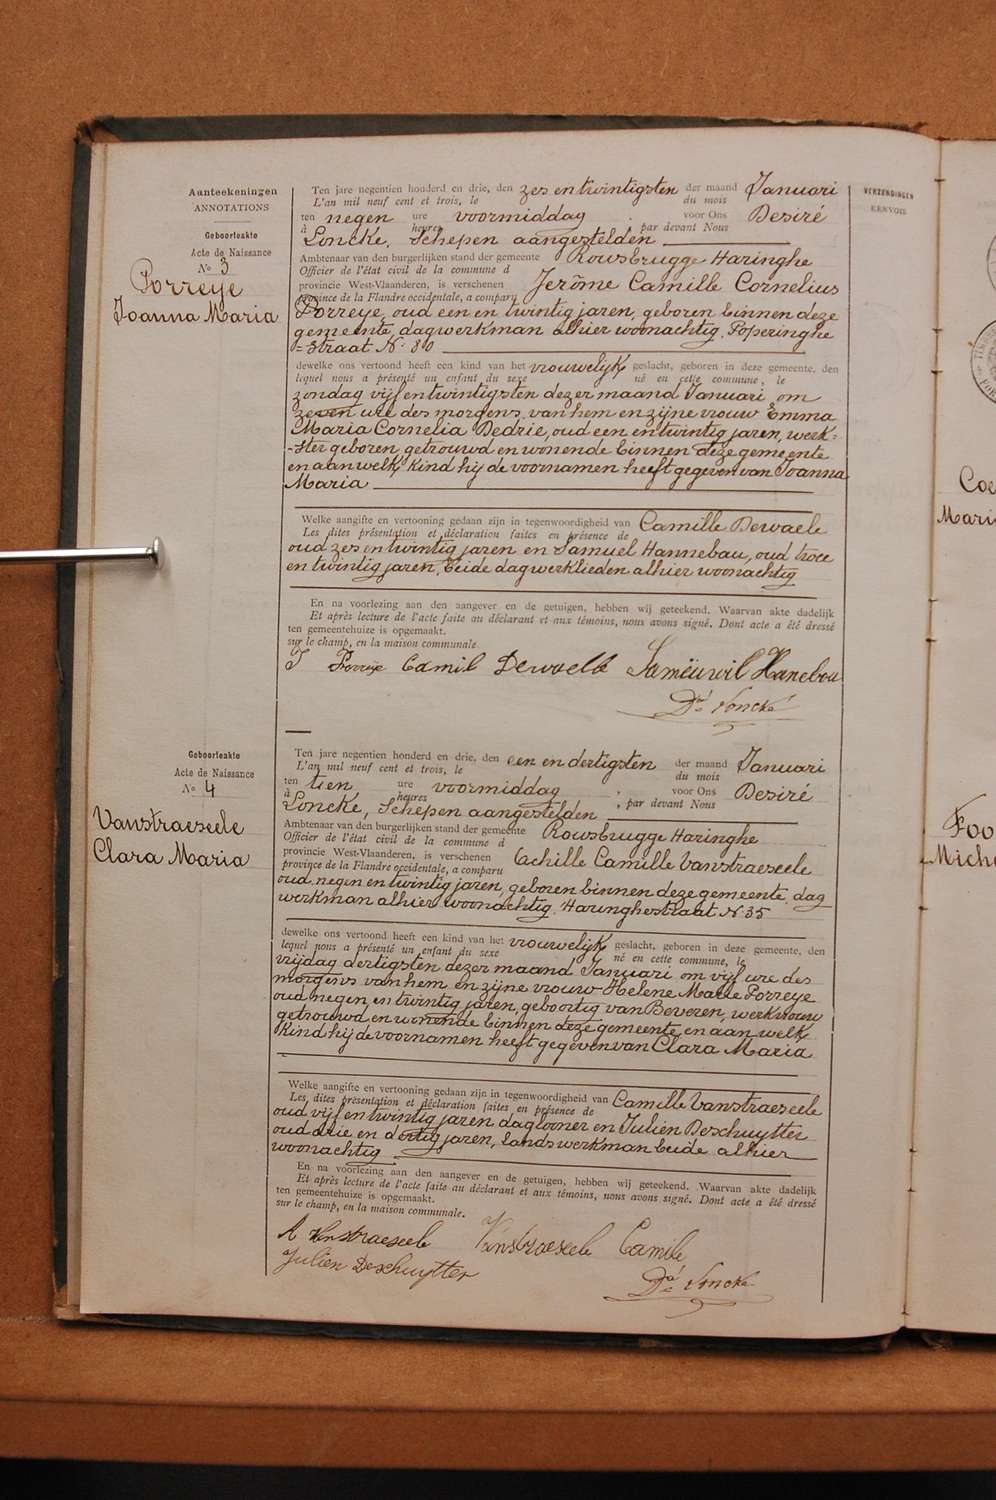 Aanteekeningen
ANNOTATIONS
Geboorteakte
Acte de Naissance
No 3
Porreye
Joanna Maria
Ten jare negentien honderd en drie, den zes en twintigsten der maand Januari
L'an mil neuf cent et trois, le du mois
ten negen ure voormiddag voor Ons Desiré
à heures par devant Nous
Loncke, Schepen aangestelden
Ambtenaar van den burgerlijken stand der gemeente Rousbrugge Haringhe
Officier de l'état civil de la commune d
provincie West-Vlaanderen, is verschenen Jerôme Camille Cornelius
province de la Flandre occidentale, a comparu
Porreye, oud een en twintig jaren, geboren binnen deze
gemeente, dagwerkman alhier woonachtig, Poperinghe
=straat No 80
dewelke ons vertoond heeft een kind van het vrouwelijk geslacht, geboren in deze gemeente, den
lequel nous a présenté un enfant du sexe né en cette commune, le
zondag vijf en twintigsten dezer maand Januari om
zeven ure des morgens, van hem en zijne vrouw Emma
Maria Cornelia Dedrie, oud een en twintig jaren, werk=
=ster geboren, getrouwd en wonende binnen deze gemeente
en aan welk kind hij de voornamen heeft gegeven van Joanna
Maria
Welke aangifte en vertooning gedaan zijn in tegenwoordigheid van Camille Dewaele
Les dites présentation et déclaration faites en présence de
oud zes en twintig jaren en Samuel Hannebau, oud twee
en twintig jaren, beide dagwerklieden alhier woonachtig
En na voorlezing aan den aangever en de getuigen, hebben wij geteekend. Waarvan akte dadelijk
Et après lecture de l'acte faite au déclarant et aux témoins, nous avons signé. Dont acte a été dressé
ten gemeentehuize is opgemaakt.
sur le champ, en la maison communale
J Porreye Camil Dewaele Sameüwil Hanebou
Dré Loncké
Geboorteakte
Acte de Naissance
No 4
Vanstraeseele
Clara Maria
Ten jare negentien honderd en drie, den een en dertigsten der maand Januari
L'an mil neuf cent et trois, le du mois
ten tien ure voormiddag voor Ons Desiré
à heures, par devant Nous
Loncké, Schepen aangestelden
Ambtenaar van den burgerlijken stand der gemeente Rousbrugge Haringhe
Officier de l'état civil de la commune d
provincie West-Vlaanderen, is verschenen Achille Camille Vanstraeseele
province de la Flandre occidentale, a comparu
oud negen en twintig jaren, geboren binnen deze gemeente, dag
werkman alhier woonachtig, Haringhestraat No 35
dewelke ons vertoond heeft een kind van het vrouwelijk geslacht, geboren in deze gemeente, den
lequel nous a présenté un enfant du sexe né en cette commune, le
vrijdag dertigsten dezer maand Januari om vijf ure des
morgens van hem en zijne vrouw Helene Marie Porreye
oud negen en twintig jaren, geboortig van Beveren, werkvrouw
getrouwd en wonende binnen deze gemeente en aan welk
kind hij de voornamen heeft gegeven van Clara Maria
Welke aangifte en vertooning gedaan zijn in tegenwoordigheid van Camille Vanstraeseele
Les dites présentation et déclaration faites en présence de
oud vijf en twintig jaren daglooner en Julien Deschuytter
oud drie en dertig jaren, landswerkman beide alhier
woonachtig
En na voorlezing aan den aangever en de getuigen, hebben wij geteekend. Waarvan akte dadelijk
Et après lecture de l'acte faite au déclarant et aux témoins, nous avons signé. Dont acte a été dressé
ten gemeentehuize is opgemaakt.
sur le champ, en la maison communale.
A Vanstraeseele Vanstraeseele Camile
Julien Deschuytter
Dré Loncke
VERZENDINGEN
RENVOIS
Coe
Mari
Foo
Mich